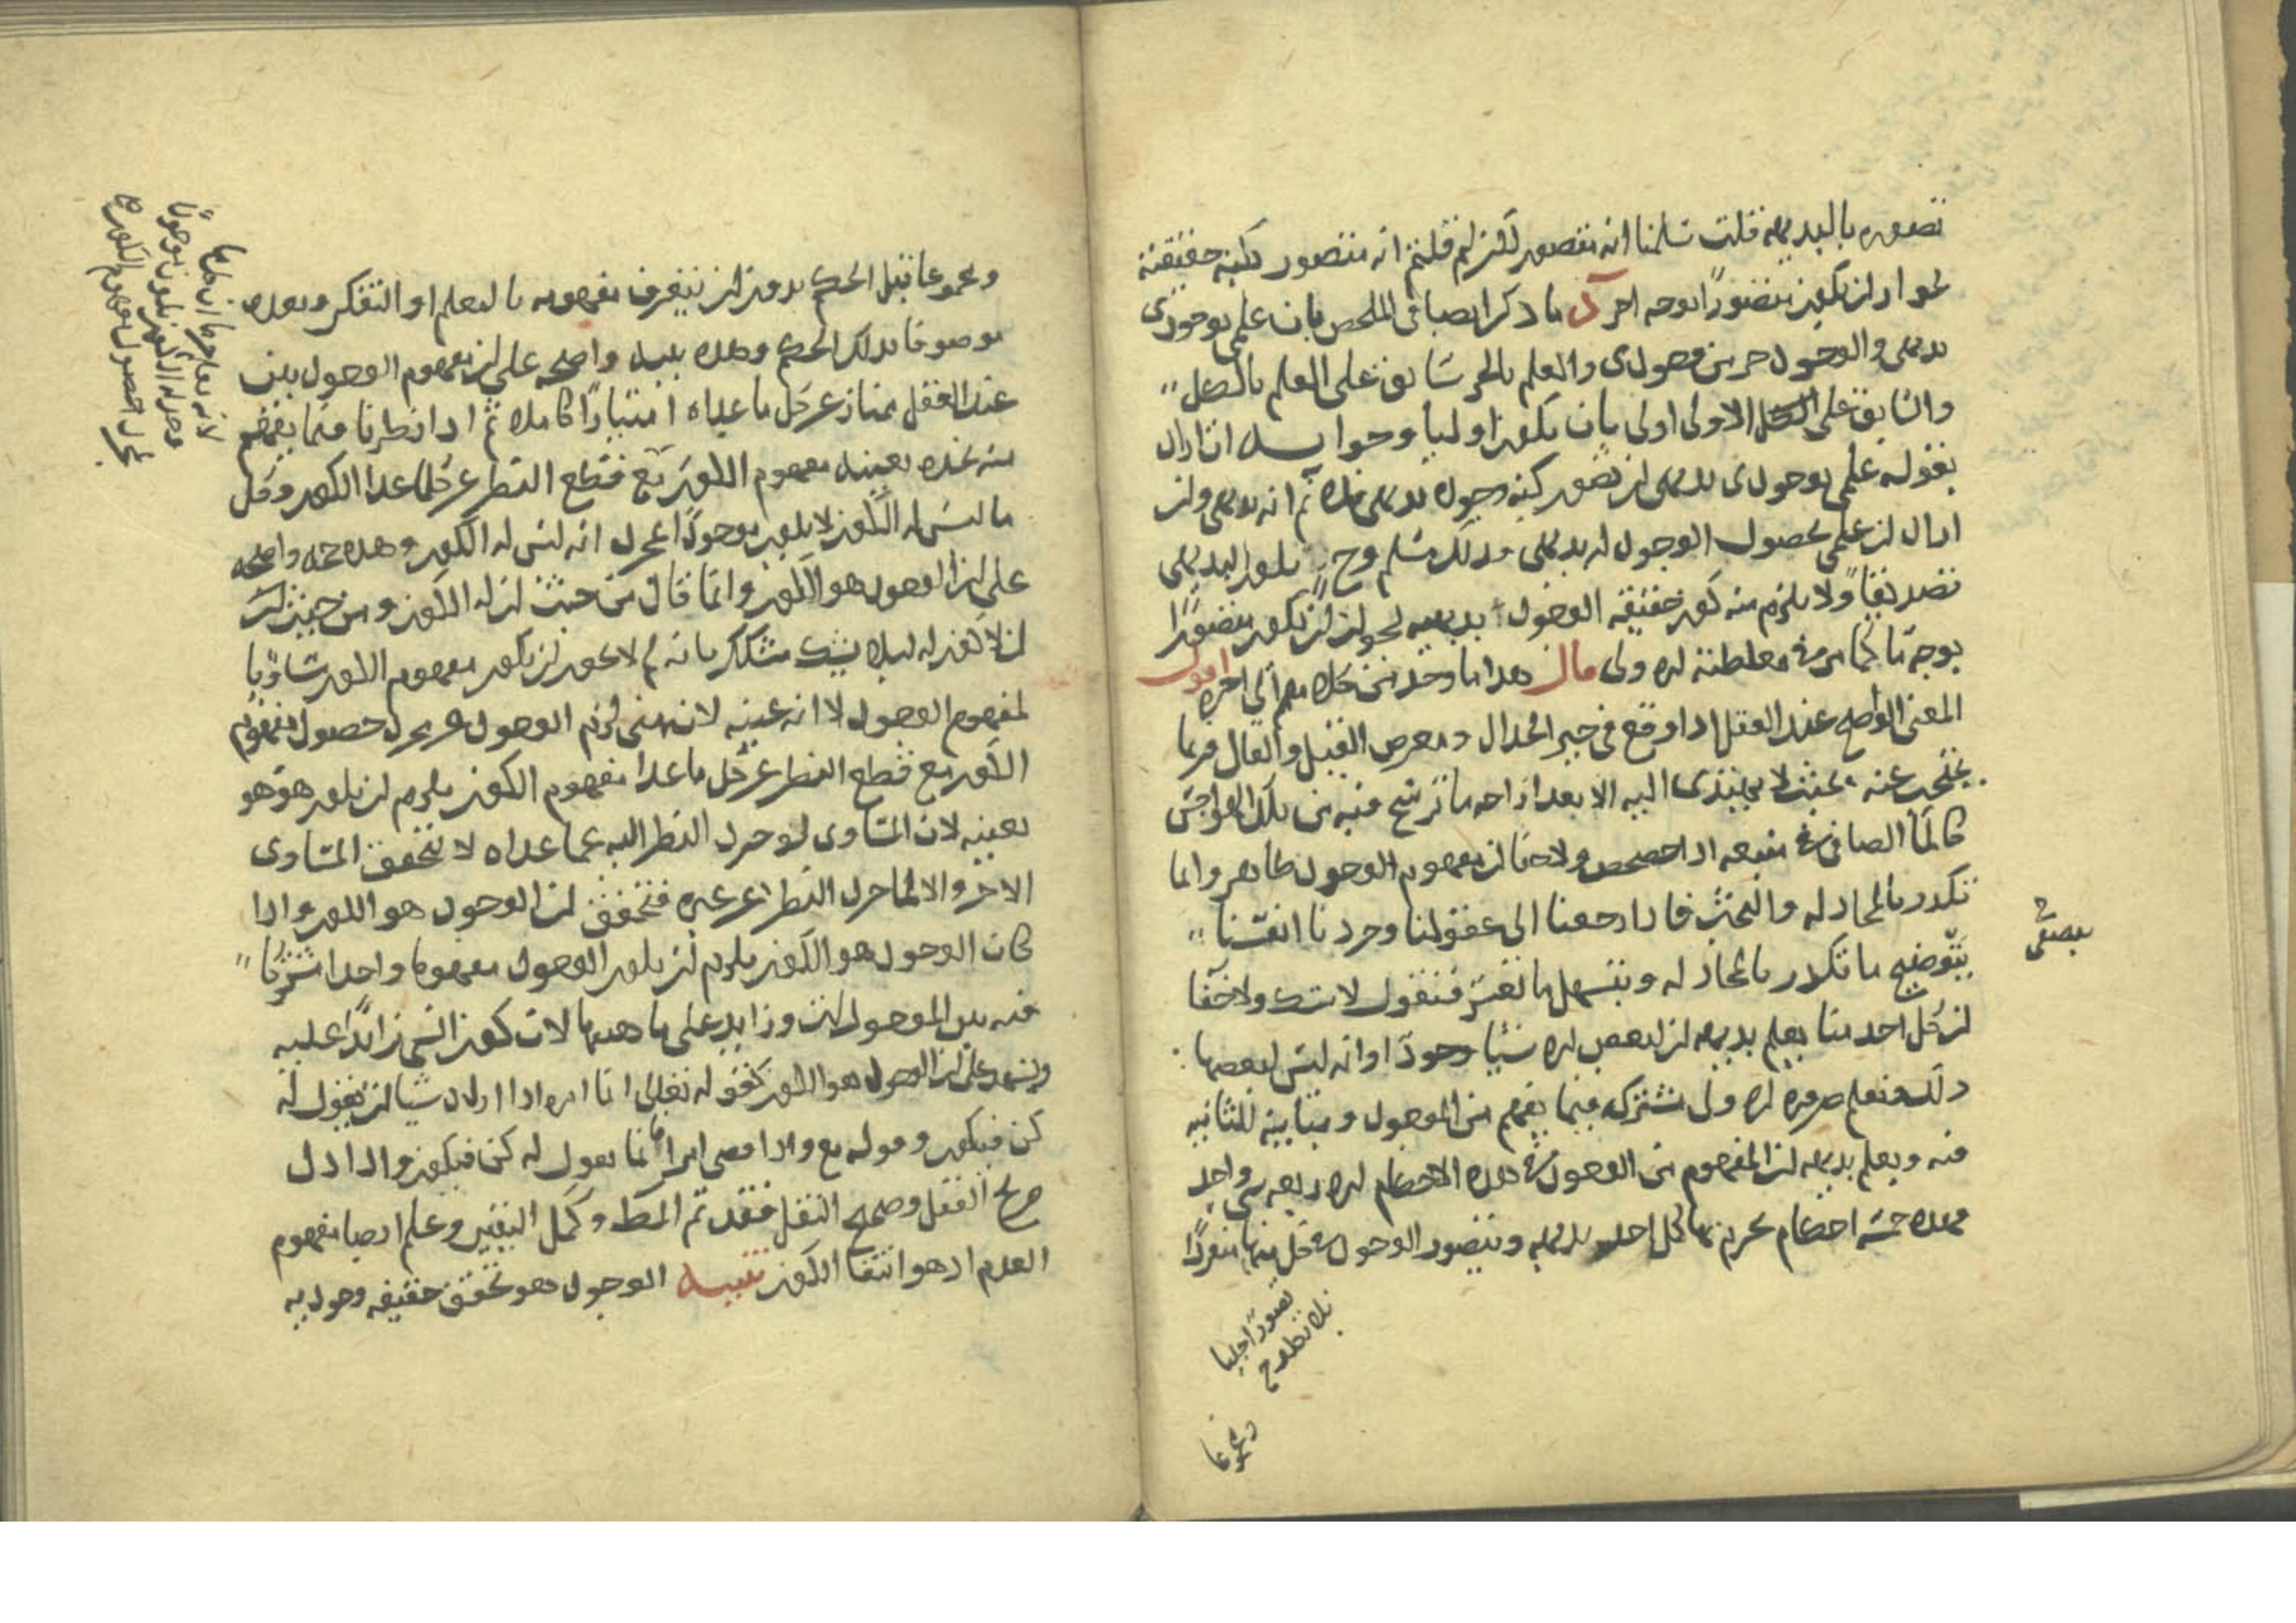 تصوره بالبديهه قلت سلمنا انه متصور لكن لم قلتم انه متصور بكنه حقيقته
لجواز ان يكون متصورا بوجه اخر ما ذكر ايضا فى الملخص بان علمى بوجودى
بديهى والوجود جز من وجودى والعلم بالجز سابق على العلم بالكل
والسابق على الاولى اولى بان يكون اوليا وجوابه انا اراد
بقوله علمى بوجودى بديهى ان تصور كنه وجوده بديهى فلا نم انه بديهى وان
اراد ان علمى بحصول الوجود له بديهى فذلك مسلم وح يكون البديهى
تصديقا ولا يلزم منه كون حقيقه الوجود بديهيه لجواز ان يكون متصورا
بوجه ما كما مر فى مغلطته قال هذا ما وجد من كلامهم الى اخره اقول
المعنى الواضح عند العقل اذا وقع فى حيز الجدال ومعرض القيل والقال فربما
يحتجب عنه بحيث لا يهتدى اليه الا بعد ازاحه ما ترشح فيه من تلك الهواجس
كالما الصافى فى منبعه اذا ولا خفا ان مفهوم الوجود ظاهر وانما
تكدر بالمجادله والبحث فاذا رجعنا الى عقولنا وجردنا انفسنا
بتوضيح ما تكدر بالمجادله وتسهل ما تعسر فنقول لا شك ولا خفا
ان كل احد منا يعلم بديهه ان لبعض الاشيا وجودا او انه ليس لبعضها
ذلك ونعلم ضروره مشتركه فيما يفهم من الموجود ومباينه للثانيه
فيه ويعلم بديهه ان المفهوم من الوجود فى هذه الاحكام شى واحد
فهذه خمسه احكام يجزم بها كل احد بديهه ويتصور الوجود فى كل منها منفردا
يصفى
تصورا جليا
ومجموعا
ومجموعا قبل الحكم بدون ان يتعرف مفهومه بالتعلم او التفكر وبعده
موصوفا بذلك الحكم وهذه بينه واضحه على ان مفهوم الوجود بين
عند العقل ممتاز عن كل ما عداه امتيازا كاملا ثم اذا نظرنا فيما يفهم
منه نجده بعينه مفهوم الكون مع قطع النظر عن كل ما عدا الكون وكل
ما ليس له الكون لا يكون موجودا بمجرد انه ليس له الكون وهذه حجه واضحه
على ان الوجود هو الكون وانما قال من حيث ان له الكون ومن حيث ليس
ان لا كون له ليلا يشك مشكك بانه لم لا يجوز ان يكون مفهوم الكون مساويا
لمفهوم الوجود لا انه عينه لانه متى لزم الوجود عن مجرد حصول مفهوم
الكون مع قطع النظر عن كل ما عدا مفهوم الكون يلزم ان يكون هو هو
بعينه لان المساوى لو جرد النظر اليه عما عداه لا يتحقق المساوى
الاخر والا لما جرد النظر عن غيره فتحقق ان الوجود هو الكون واذا
كان الوجود هو الكون يلزم ان يكون الوجود مفهوما واحدا مشتركا
فيه بين الموجودات وزايد على ماهياتها لان كون الشى زايدا عليه
ويشهد على ان الوجود هو الكون كقوله تعالى انما امره اذا اراد شيا ان يقول له
كن فيكون وقوله تع واذا قضى امرا فانما يقول له كن فيكون واذا دل
صريح العقل وصحيح النقل فقد تم المط وكمل اليقين وعلم ايضا مفهوم
العدم اذ هو انتفا الكون تنبيه الوجود هو تحقق حقيقه وجوديه